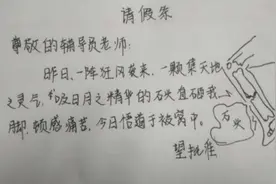 请假条
尊敬的辅导员老师:
昨日,一阵狂风袭来,一颗集天地
之灵气,吸日月之精华的石头直砸我
脚,顿感痛苦,今日惜躺于被窝中。
望批准
石头